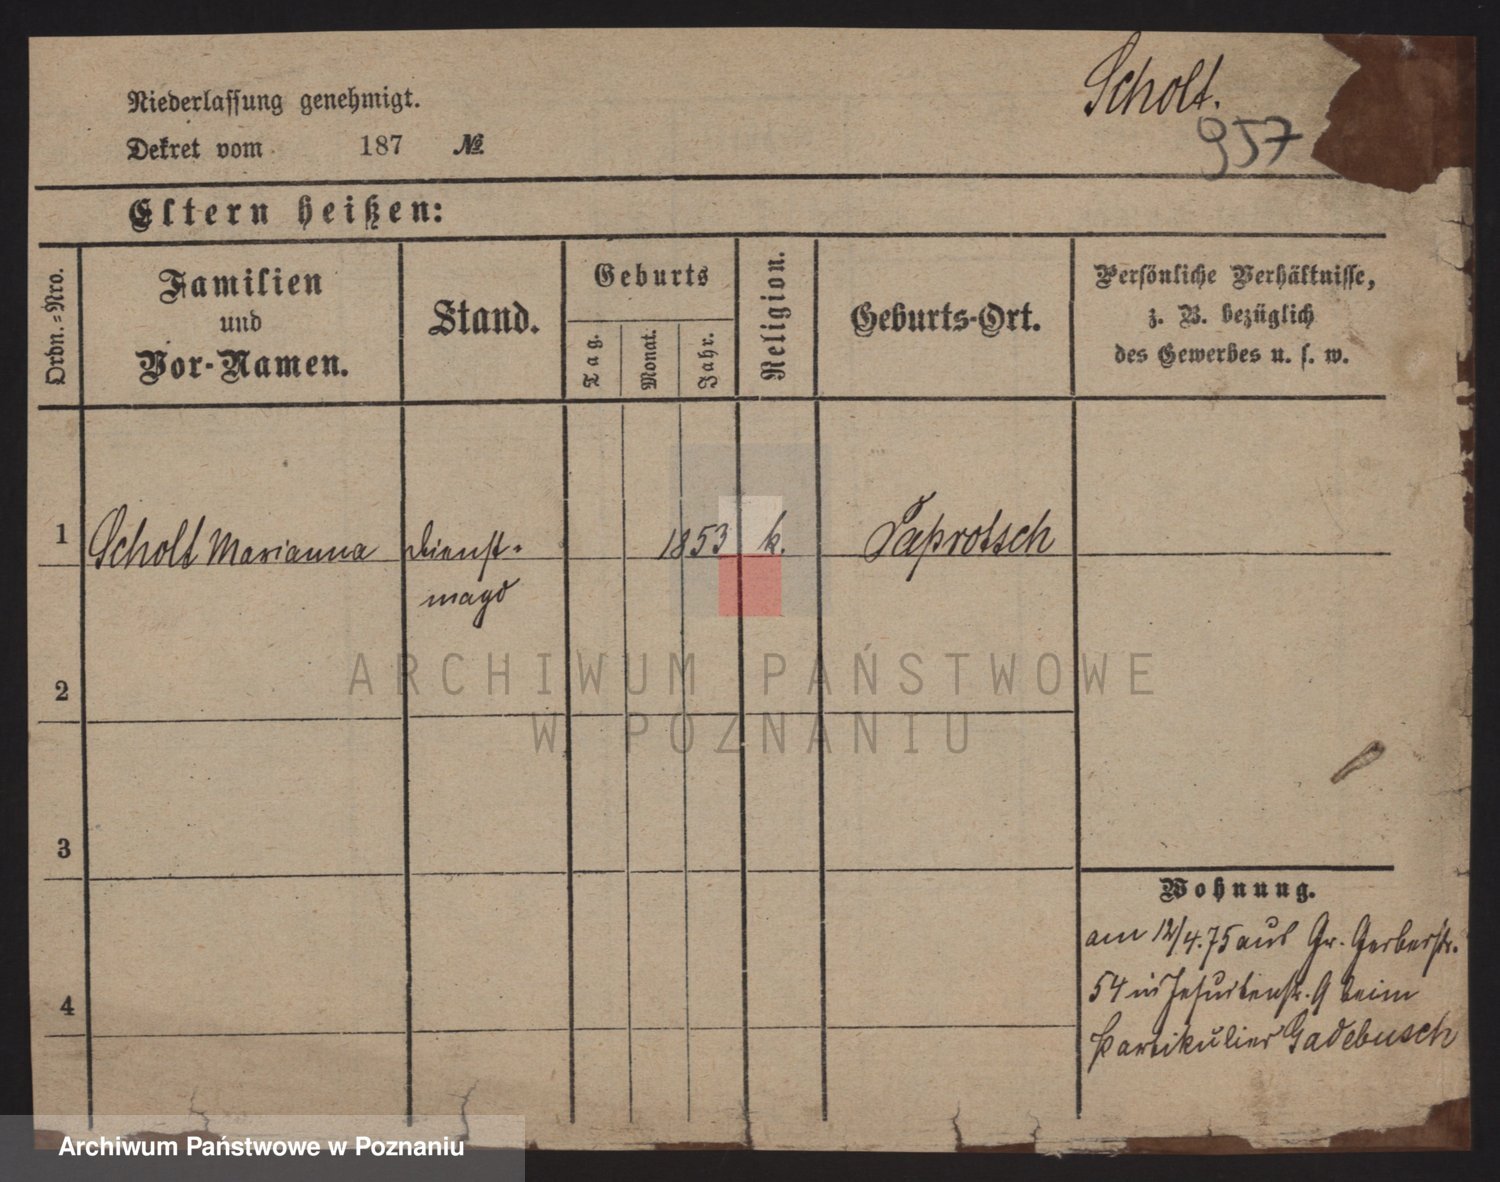 Scholt.
957
Niederlassung genehmigt.
Dekret vom 187 №
Eltern heißen:
Ordn.=Nro.
Familien
und
Vor-Namen.
Stand.
Geburts
Tag.
Monat.
Jahr.
Religion.
Geburts-Ort.
Persönliche Verhältnisse,
z. B. bezüglich
des Gewerbes u. s. w.
1 Scholt Marianna Dienst- 1853 k. Paprotsch
magd
2
3
4
Wohnung.
am 12/4.75 aus Gr. Gerberstr.
54 in Jesuitenstr. 9 beim
Partikulier Gadebusch
ARCHIWUM PAŃSTWOWE
W POZNANIU
Archiwum Państwowe w Poznaniu